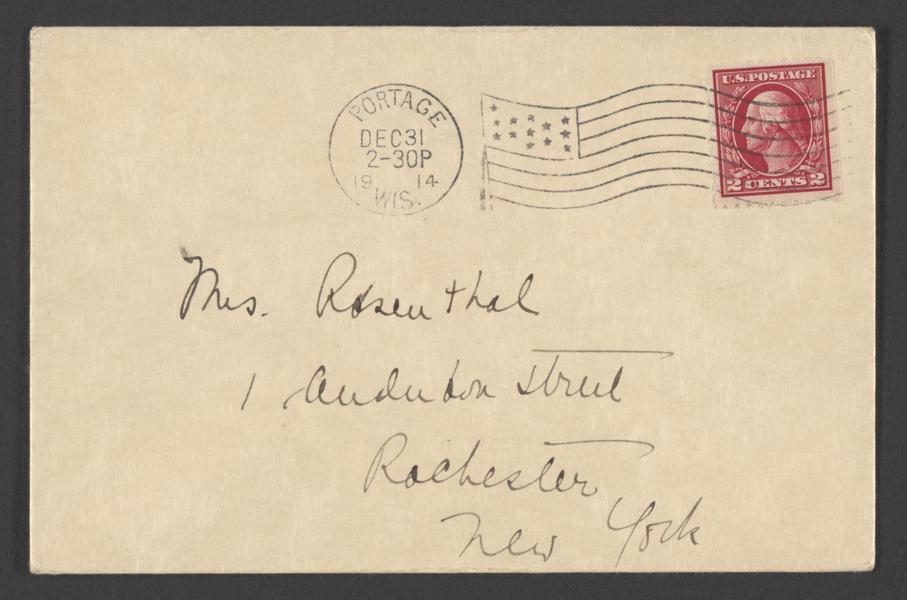 PORTAGE
DEC 31
2-30P
19 14
WIS.
U.S. POSTAGE
2 CENTS 2
Mrs. Rosenthal
1 Audubon Street
Rochester
New York